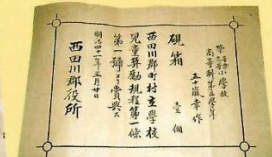 高等科第五學年
五十嵐幸作
硯箱 壹個
西田川郡町村立學校
兒童奬勵規程第一條
第一號ヨリ賞與ス
明治四十一年三月廿日
西田川郡役所